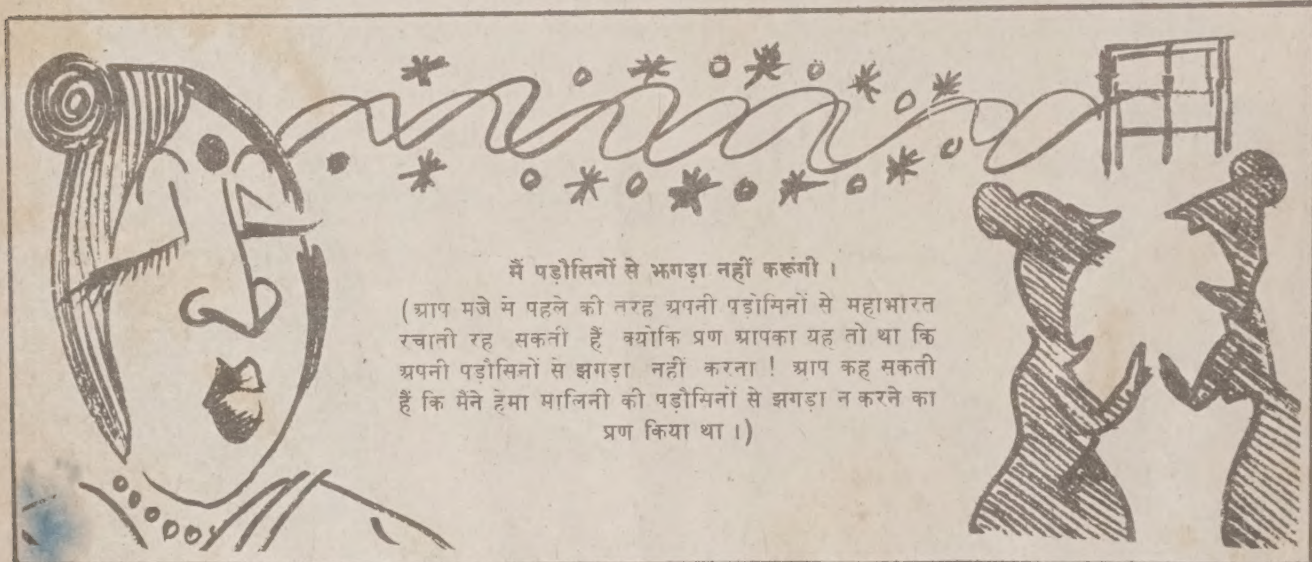 मैं पड़ौसिनों से झगड़ा नहीं करूंगी ।
(आप मजे से पहले की तरह अपनी पड़ोसिनों से महाभारत
रचाती रह सकती हैं क्योंकि प्रण आपका यह तो था कि
अपनी पड़ौसिनों से झगड़ा नहीं करना ! आप कह सकती
हैं कि मैंने हेमा मालिनी की पड़ौसिनों से झगड़ा न करने का
प्रण किया था ।)